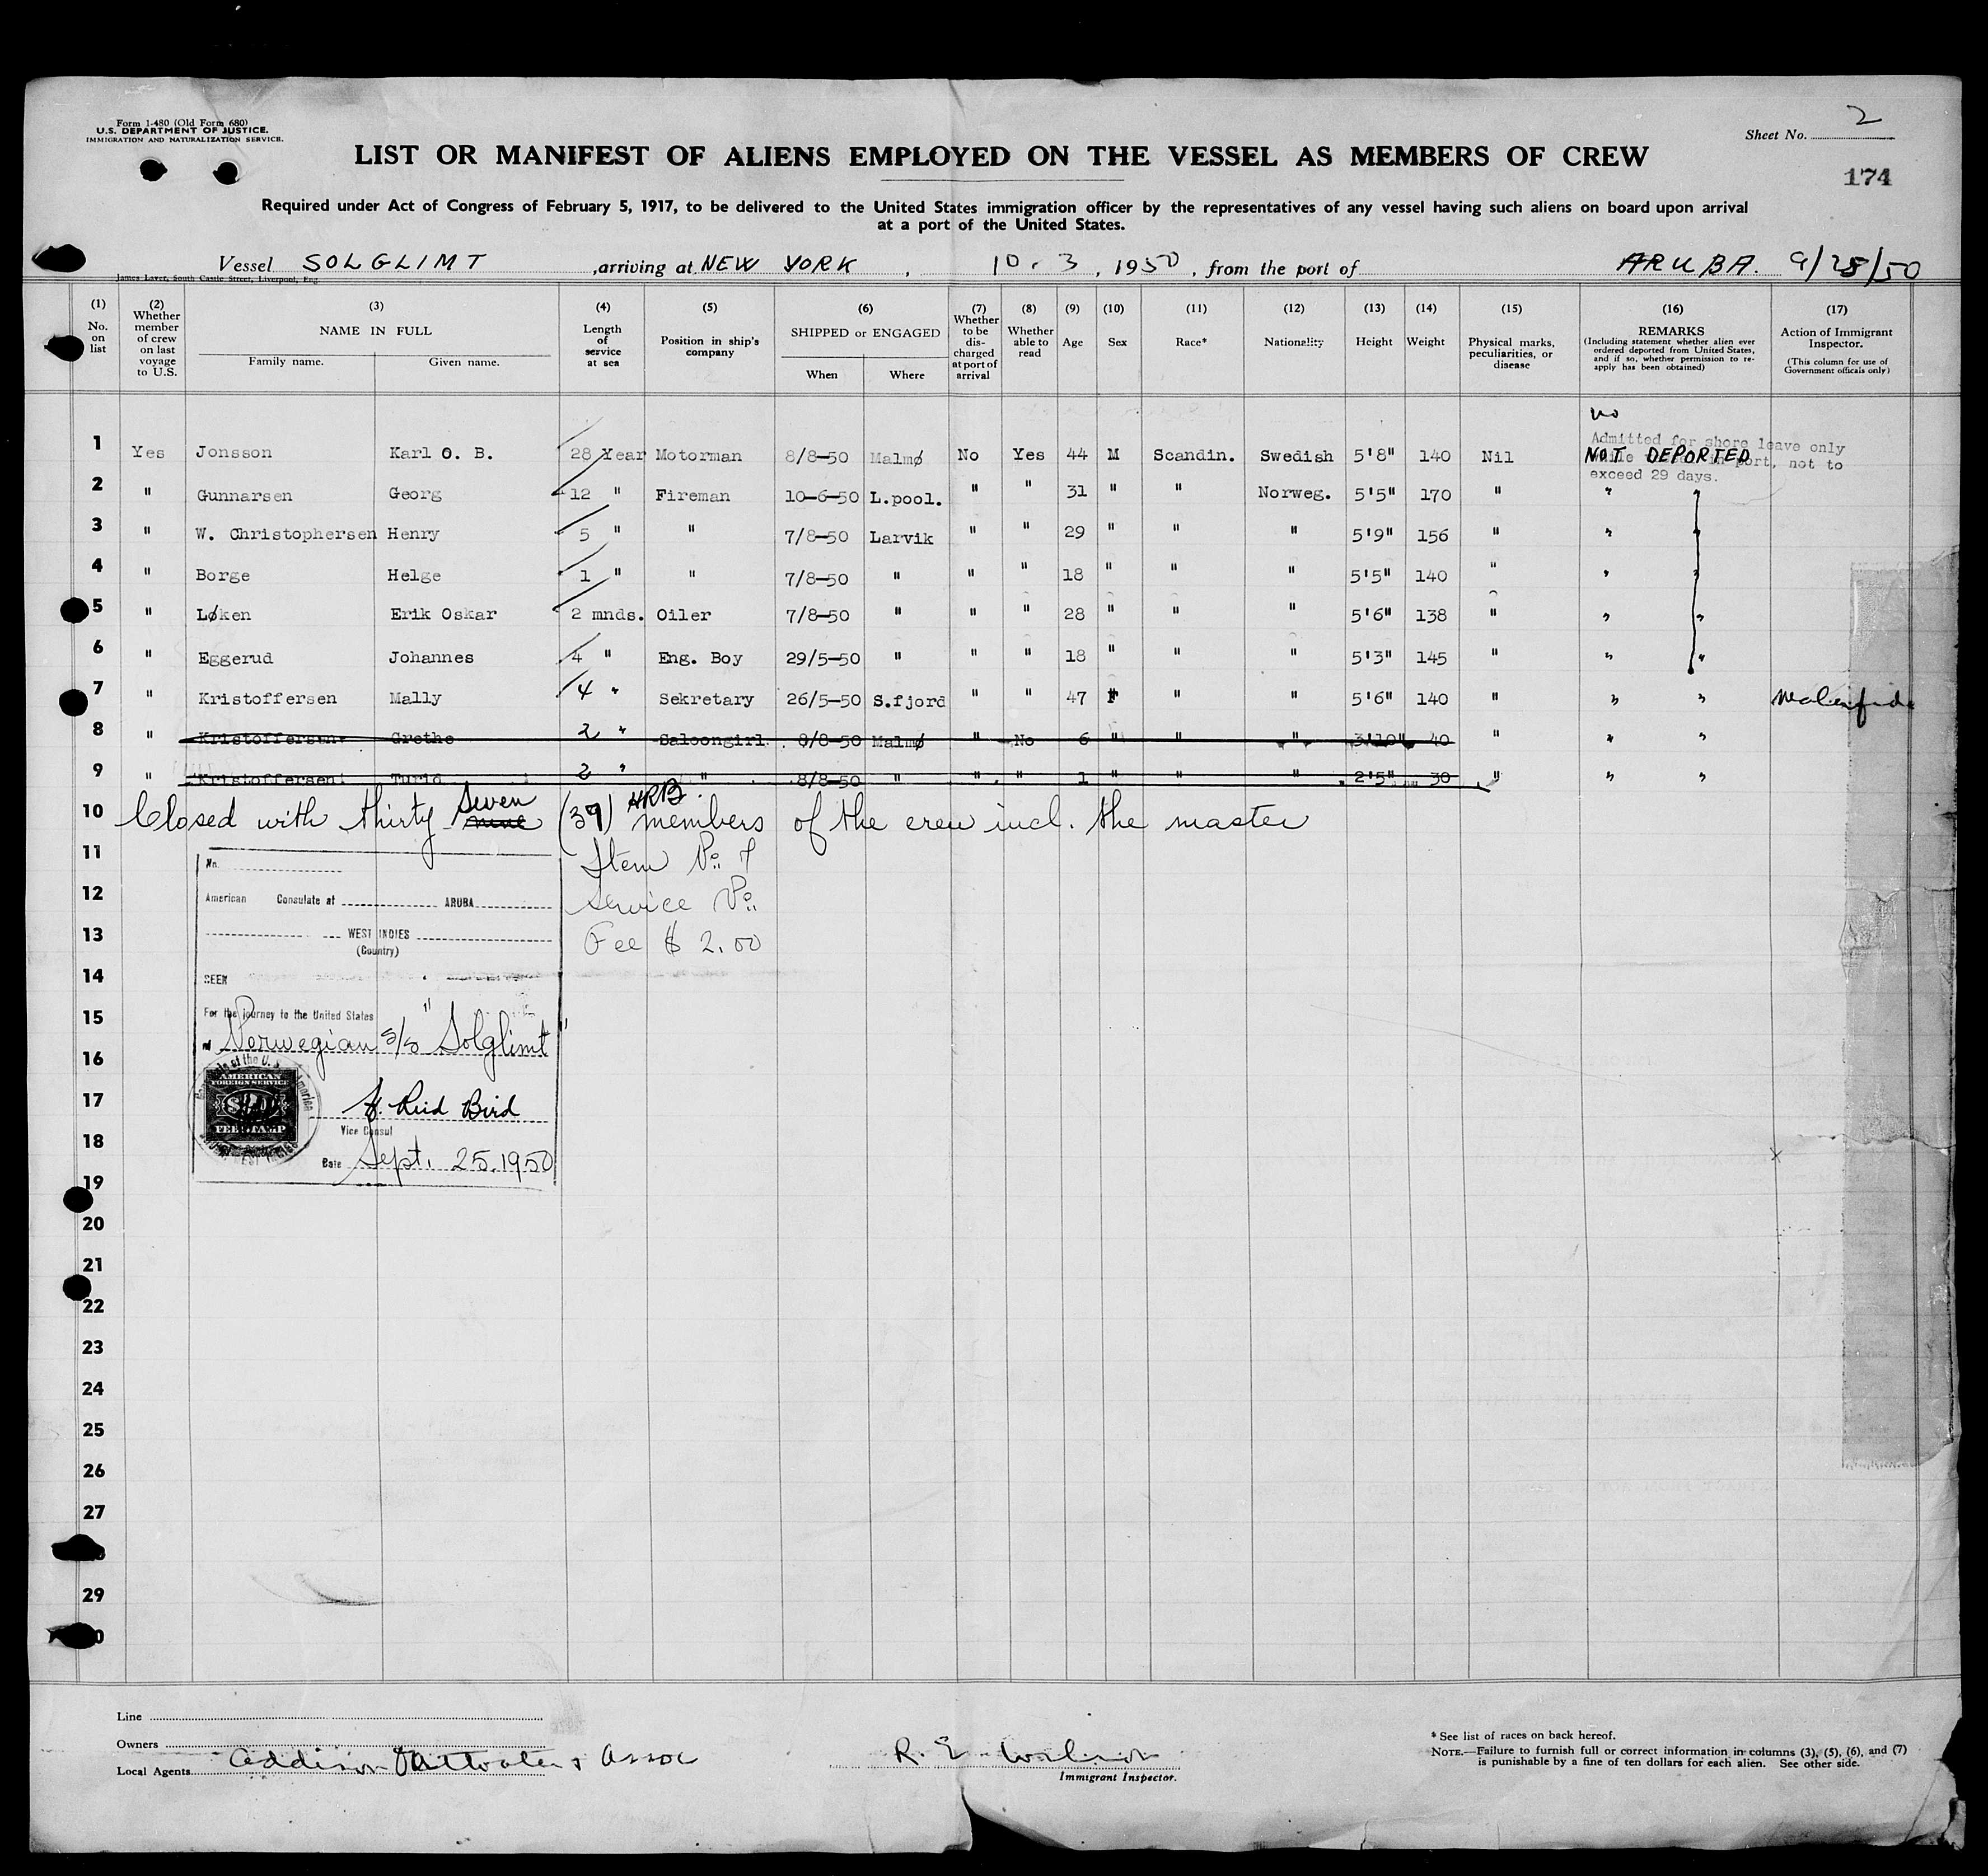 Form 1-480 (Old Form 680)
U.S. DEPARTMENT OF JUSTICE.
IMMIGRATION AND NATURALIZATION SERVICE.
Sheet No. 2
LIST OR MANIFEST OF ALIENS EMPLOYED ON THE VESSEL AS MEMBERS OF CREW
174
Required under Act of Congress of February 5, 1917, to be delivered to the United States immigration officer by the representatives of any vessel having such aliens on board upon arrival
at a port of the United States.
Vessel SOLGLIMT, arriving at NEW YORK, 10. 3, 1950, from the port of ARUBA. 9/28/50
James Laver, South Castle Street, Liverpool, Eng.
(1) No. on list
(2) Whether member of crew on last voyage to U.S.
(3) NAME IN FULL Family name. Given name.
(4) Length of service at sea
(5) Position in ship's company
(6) SHIPPED or ENGAGED When Where
(7) Whether to be discharged at port of arrival
(8) Whether able to read
(9) Age
(10) Sex
(11) Race*
(12) Nationality
(13) Height
(14) Weight
(15) Physical marks, peculiarities, or disease
(16) REMARKS (Including statement whether alien ever ordered deported from United States, and if so, whether permission to re-apply has been obtained)
(17) Action of Immigrant Inspector. (This column for use of Government officials only)
no
Admitted for shore leave only
in port, not to
exceed 29 days.
1 Yes Jonsson Karl O. B. 28 Year Motorman 8/8-50 Malmø No Yes 44 M Scandin. Swedish 5'8" 140 Nil NOT DEPORTED
2 " Gunnarsen Georg 12 " Fireman 10-6-50 L.pool. " " 31 " " Norweg. 5'5" 170 " " "
3 " W. Christophersen Henry 5 " " 7/8-50 Larvik " " 29 " " " 5'9" 156 " " "
4 " Borge Helge 1 " " 7/8-50 " " " 18 " " " 5'5" 140 " " "
5 " Løken Erik Oskar 2 mnds. Oiler 7/8-50 " " " 28 " " " 5'6" 138 " " "
6 " Eggerud Johannes 4 " Eng. Boy 29/5-50 " " " 18 " " " 5'3" 145 " " "
7 " Kristoffersen Mally 4 " Sekretary 26/5-50 S.fjord " " 47 F " " 5'6" 140 " " "
8 " Kristoffersen Grethe 2 " Saloongirl 8/8-50 Malmø " No 6 " " " 3'10" 40 " " "
9 " Kristoffersen Turid 2 " " 8/8-50 " " " 1 " " " 2'5" 30 " " "
10 Closed with thirty nine seven (37) HRB members of the crew incl. the master
11 No. Item No. 7
12 American Consulate at ARUBA Service No.
13 WEST INDIES Fee $ 2.00
(Country)
14 SEEN
15 For the journey to the United States
Norwegian s/s "Solglimt"
16
AMERICAN
FOREIGN SERVICE
17
FEE STAMP
Reid Bird
Vice Consul
18
Date Sept. 25. 1950
19
20
21
22
23
24
25
26
27
29
Line
Owners
Local Agents Addison & Assoc
R. E.
Immigrant Inspector.
* See list of races on back hereof.
NOTE.—Failure to furnish full or correct information in columns (3), (5), (6), and (7)
is punishable by a fine of ten dollars for each alien. See other side.